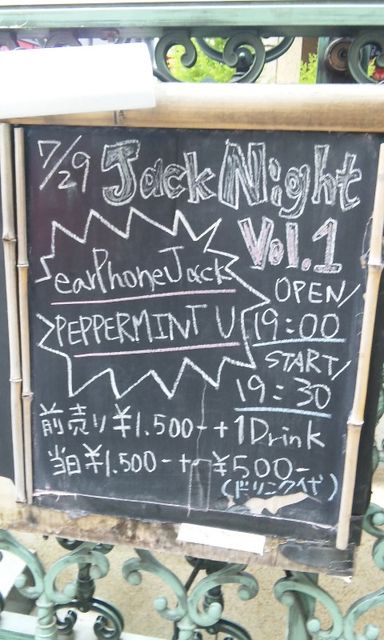 7/29 Jack Night
Vol.1
earPhoneJack
PEPPERMINT U
OPEN/
19:00
START/
19:30
前売り¥1.500-+1Drink
当日¥1.500-+¥500-
(ドリンク代)